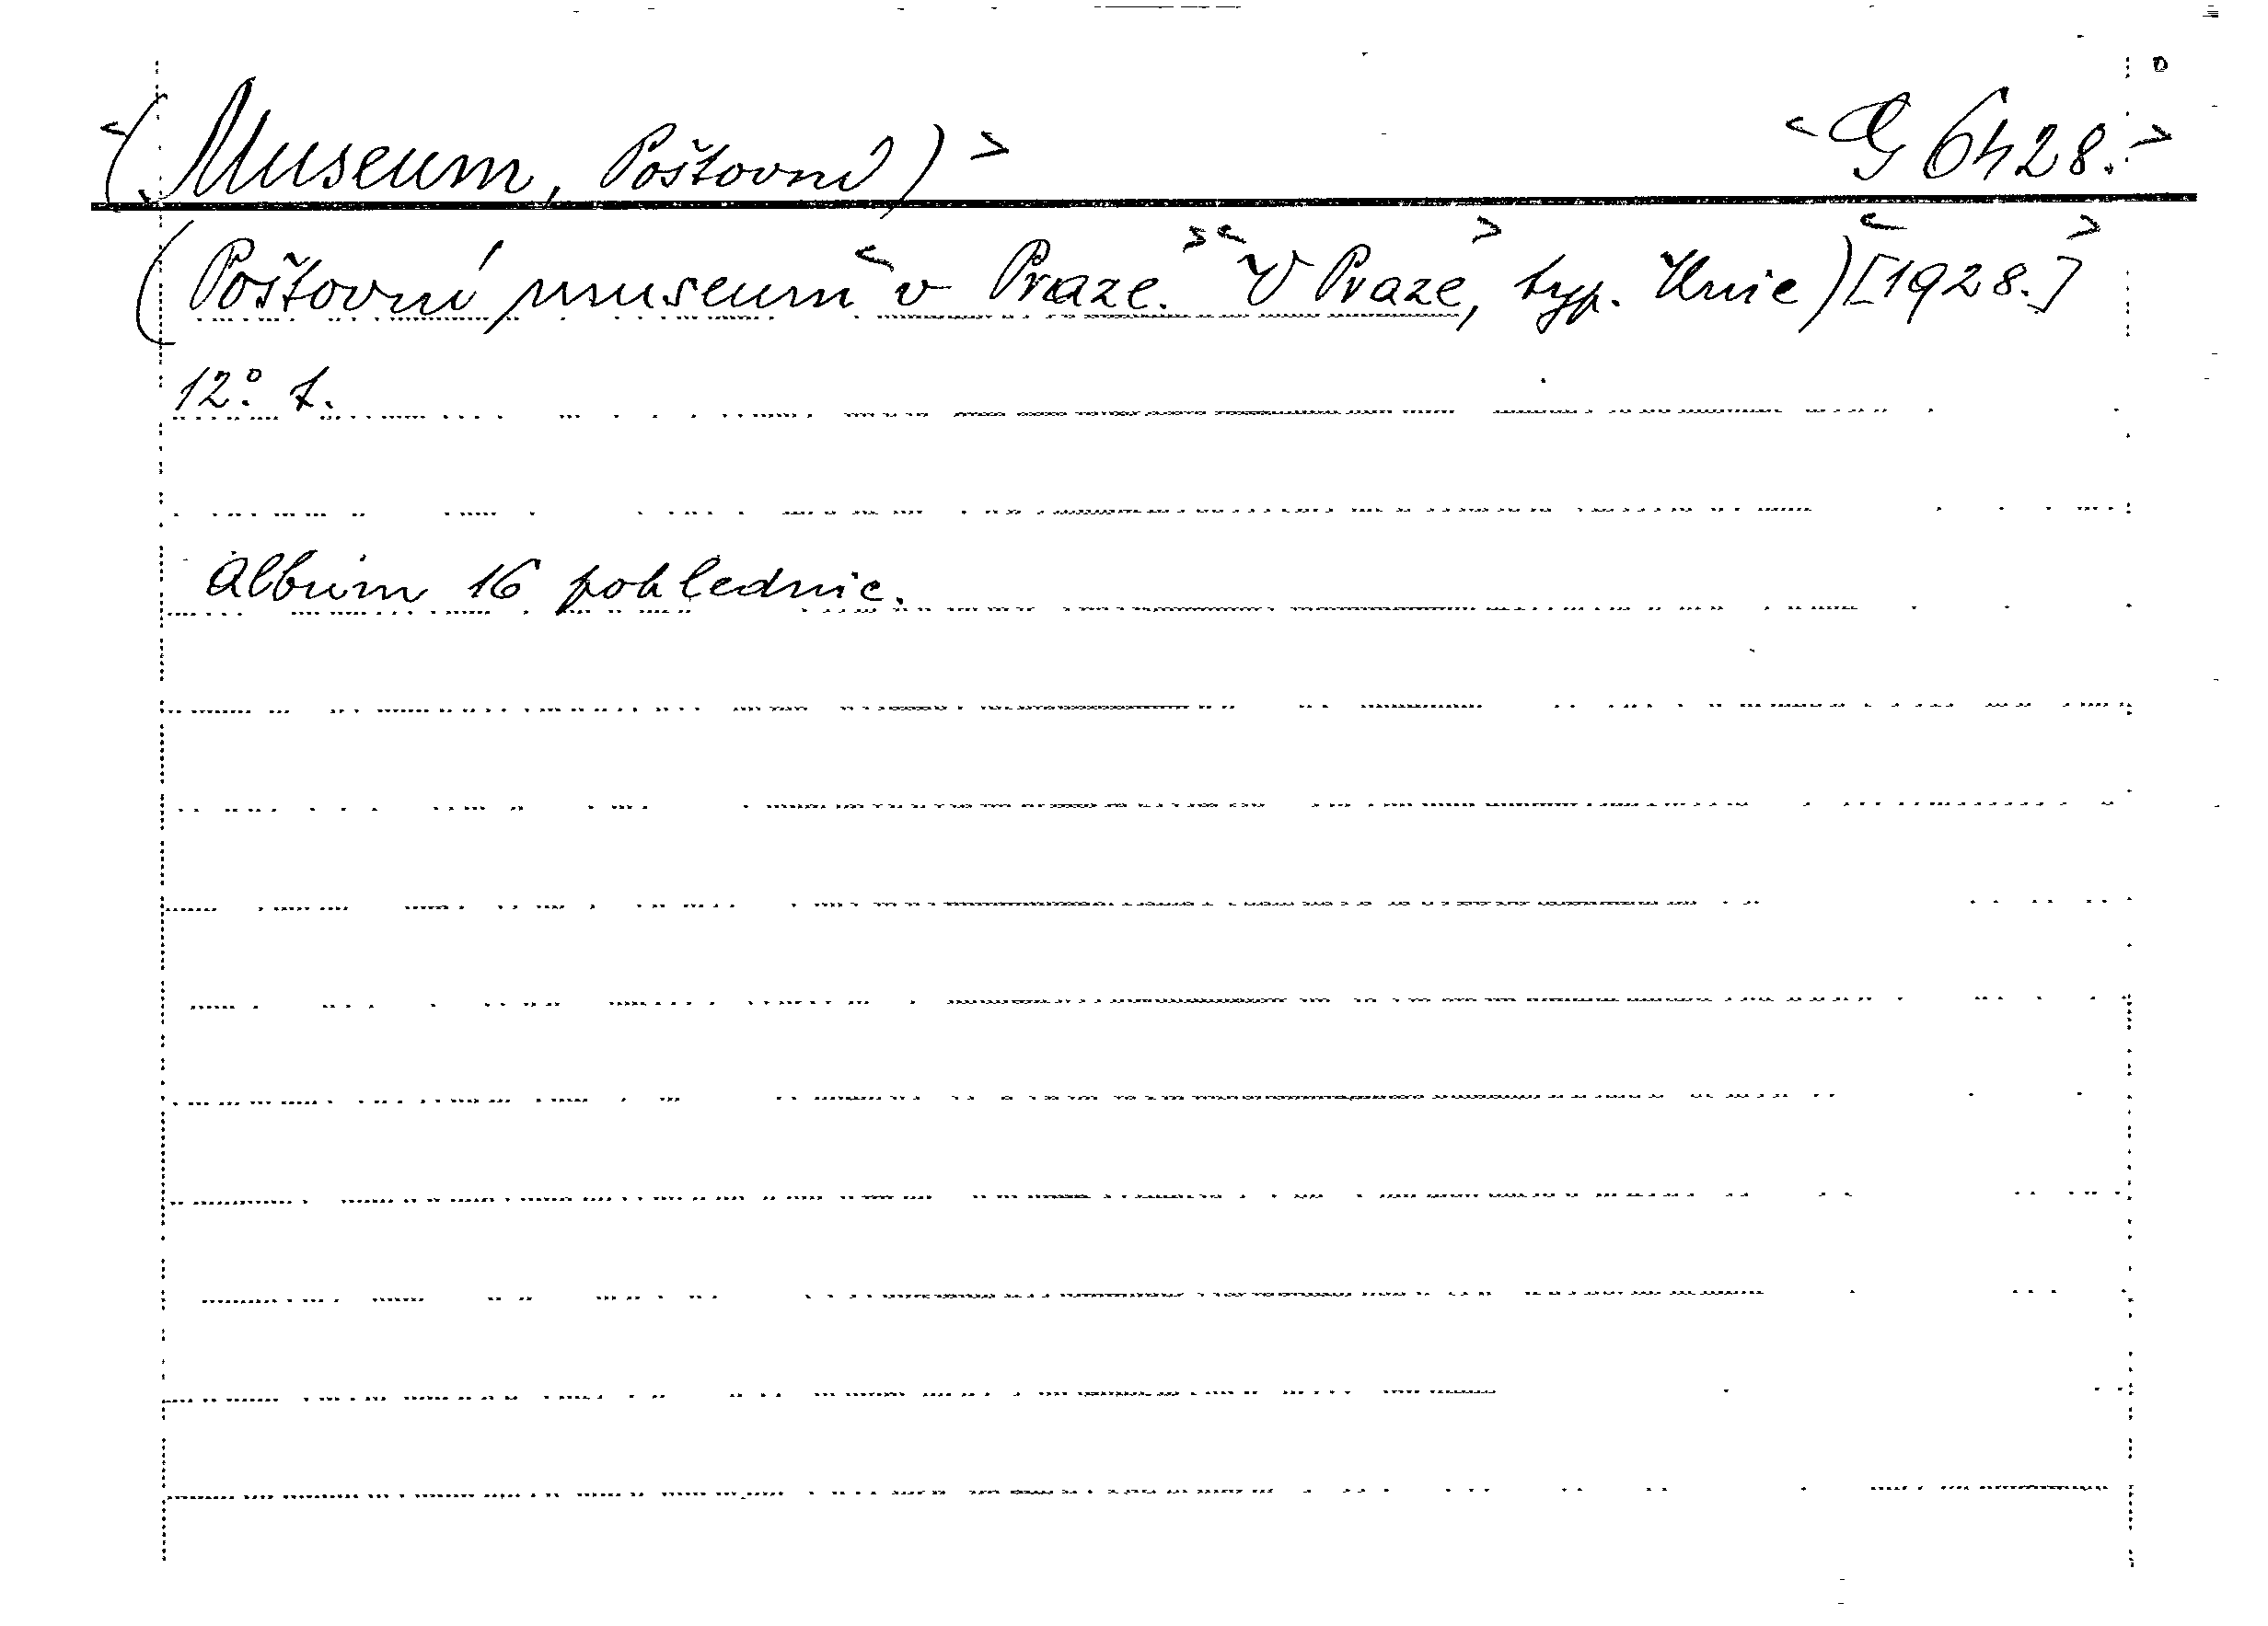 <(Museum, Poštovní)> <G 6428.>
(Poštovní museum <v Praze.> <V Praze,> typ. Unie) <[1928.]>
12°. 1.
Album 16 pohlednic.